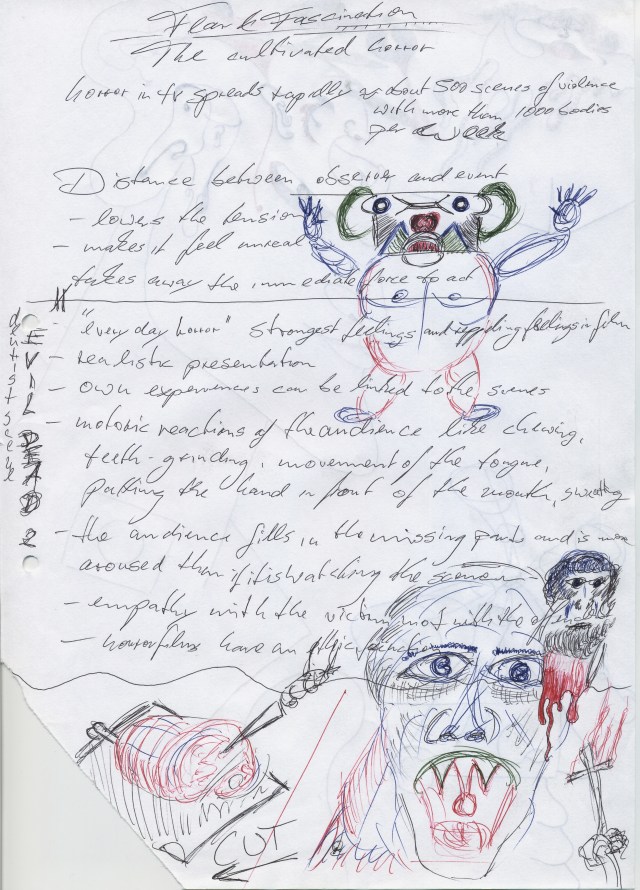 Fear & Fascination
The cultivated horror
horror in tv spreads rapidly as about 500 scenes of violence
with more than 1000 bodies
per week
Distance between observer and event
- lowers the tension
- makes it feel unreal
takes away the immediate force to act
- "every day horror" strongest feelings and appealing feelings in film
- realistic presentation
- own experiences can be linked to the scenes
- motoric reactions of the audience like chewing,
teeth-grinding, movement of the tongue,
putting the hand in front of the mouth, sweating
- the audience fills in the missing parts and is more
aroused than if it is watching the scene
- empathy with the victim not with the
- horrorfilms have an
dentist scene
EVIL DEAD 2
CUT